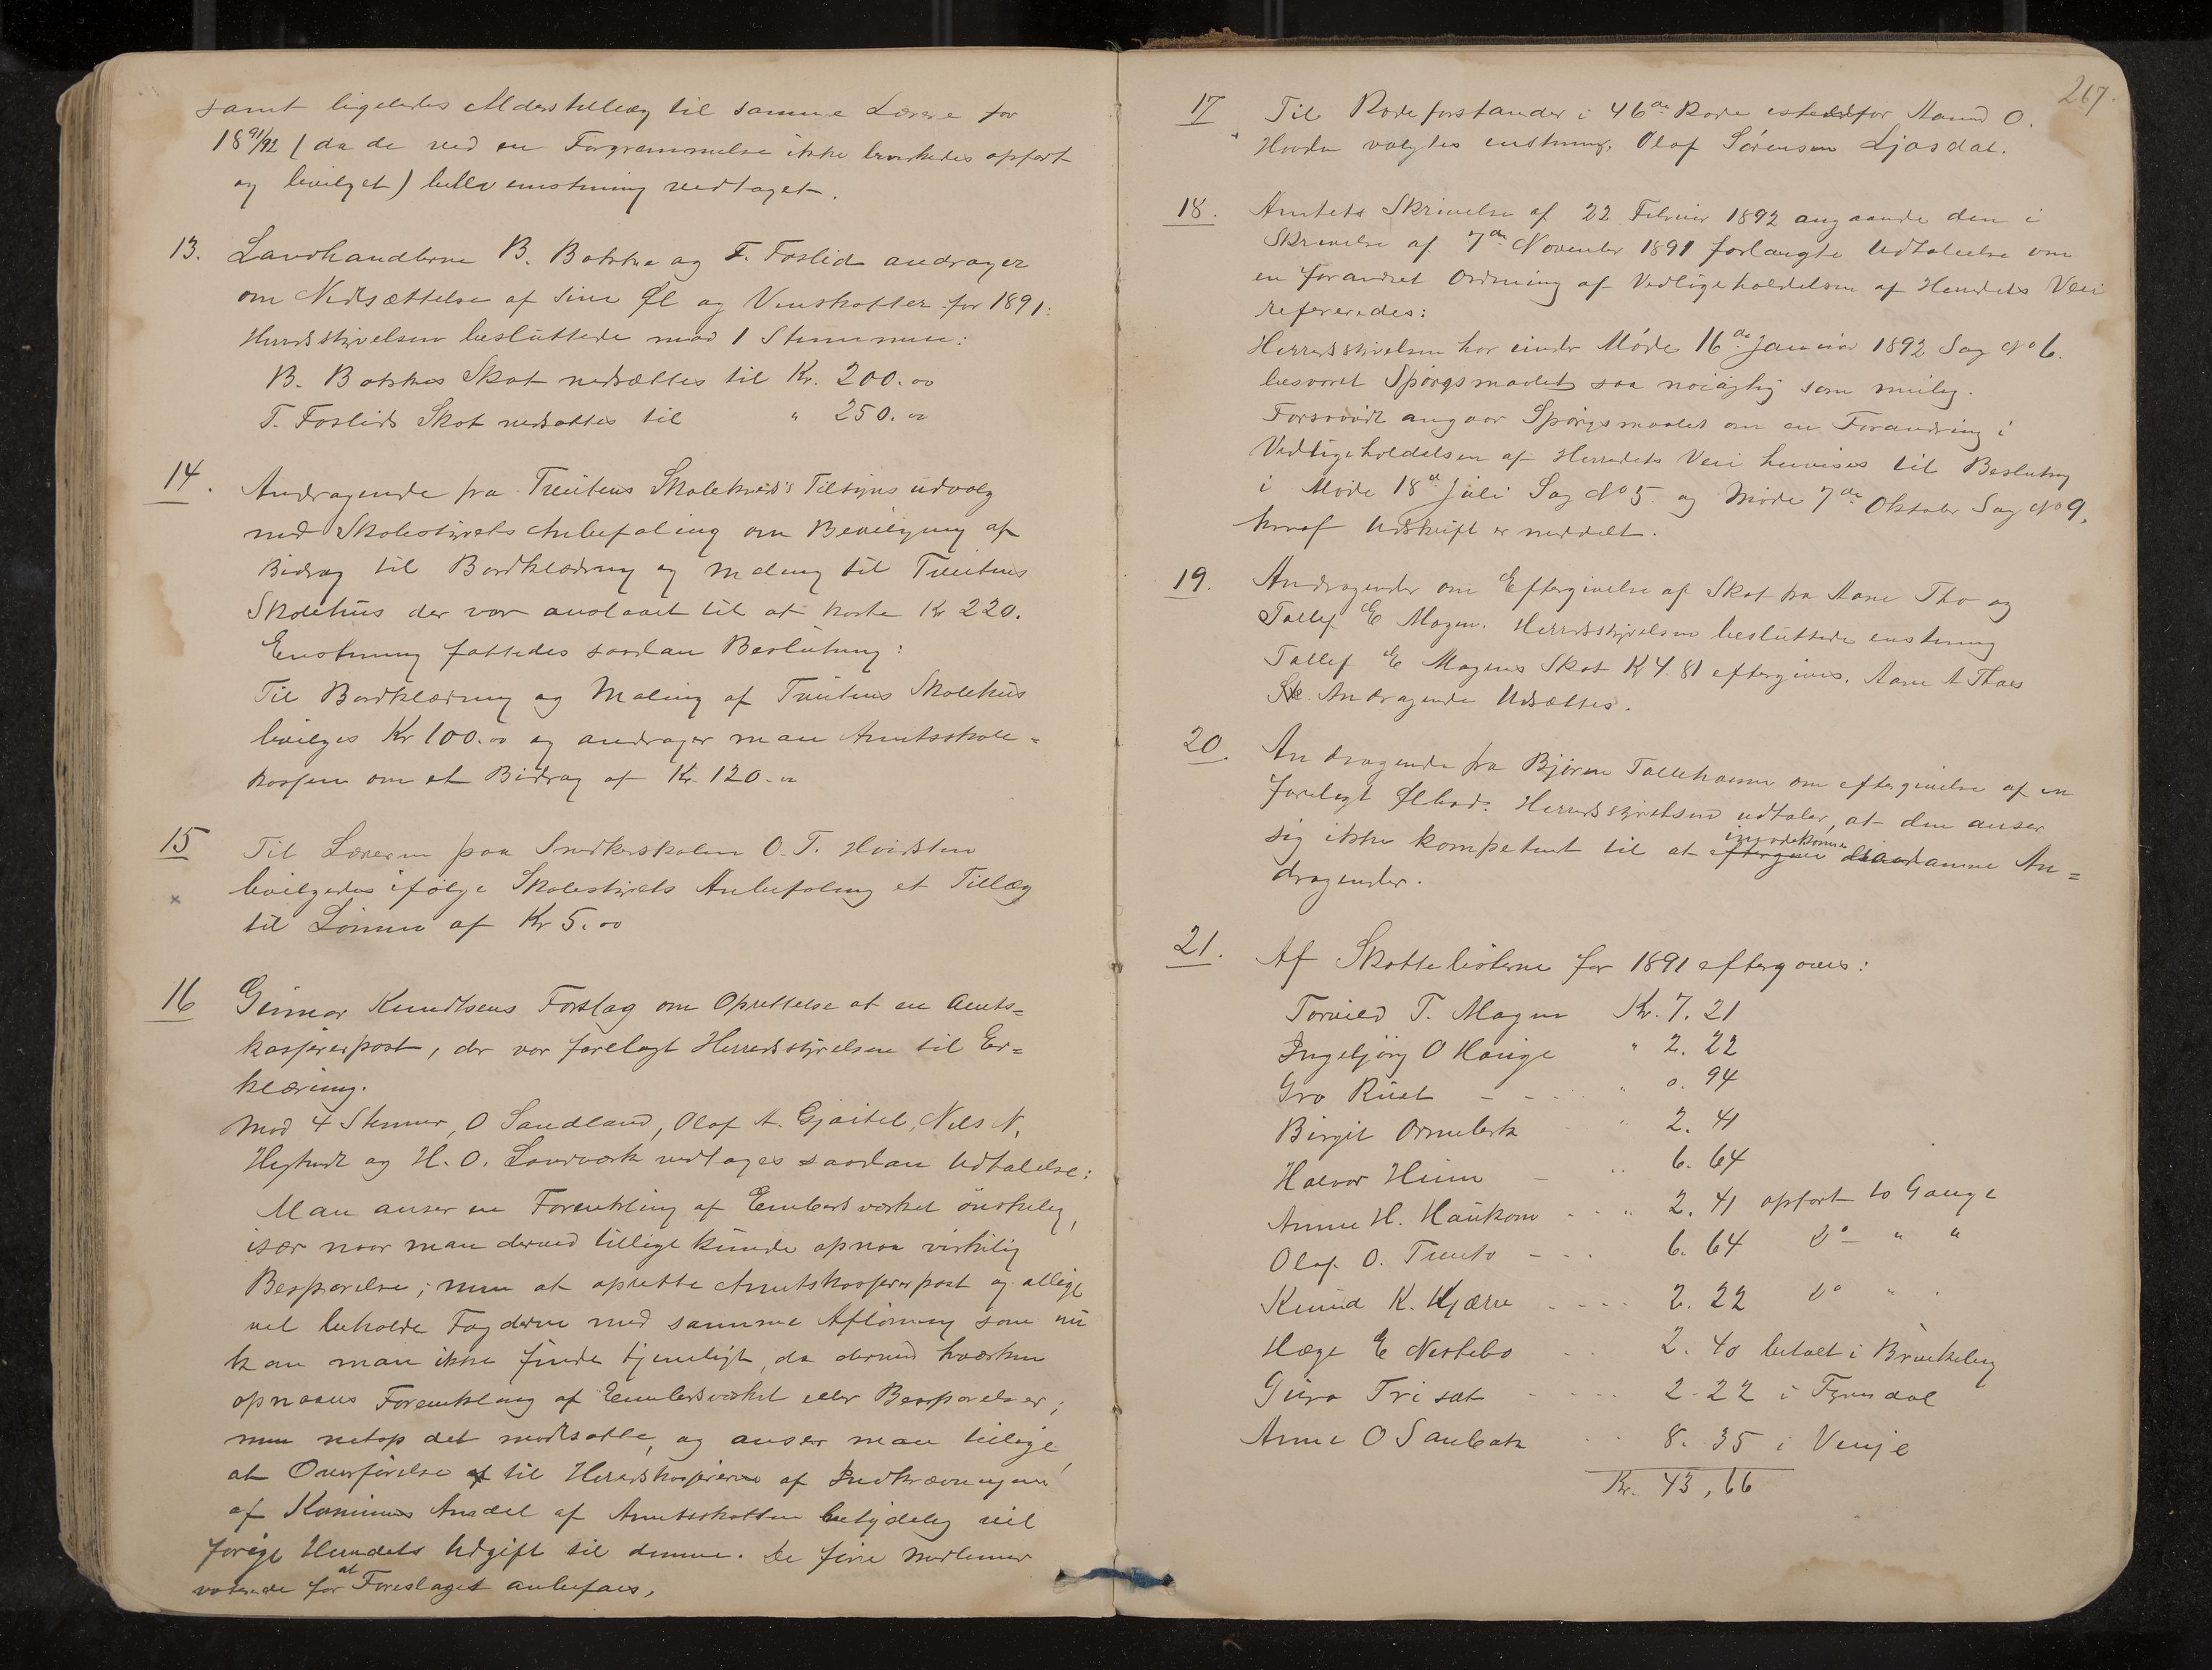 samt ligeledes Alderstillæg til samme Lærere for
18 91/92 (da de ved en Forgremmelse ikke bruskedes opført
og bevilget) blev enstemmig vedtaget.
13. Landhandlerne B. Bakka og T. Foslid andrager
om Nedsættelse af sine Øl og Vinskatter for 1891:
Herredsstyrelsen besluttede mod 1 Stemme:
B. Bakkas Skat nedsættes til Kr. 200.00
T. Foslids Skat nedsættes til " 250.00
14. Andragende fra Treitens Skolekreds's Tilsynsudvalg
med Skolestyrets Anbefaling om Bevilgning af
Bidrag til Bordklædning og Maling til
Skolehus der var anslaaet til at koste Kr 220.
Enstemmig fattedes saadan Beslutning:
Til Bordklædning og Maling af Skolehus
bevilges Kr 100.00 og andrager man Amtsskole=
kassen om et Bidrag af Kr. 120.00
15 Til Læreren paa Snedkerskolen O. T. Hvidsten
bevilgedes ifølge Skolestyrets Anbefaling et Tillæg
til Lønnen af Kr 5.00
16 Gunnar Knudtsens Forslag om Oprettelse at en Amts=
kasserer post, der var forelagt Herredsstyrelsen til Er=
klæring.
Mod 4 Stemmer, O Sandland, Olaf A. Gjøitil, Nils N.
og H. O. Landværk vedtages saadan Udtalelse:
Man anser en Forenkling af Embedsværket ønskelig,
især naar man derved tillige kunde opnaa virkelig
Besparelse; men at oprette Amtskassererpost og allige
vel beholde Fogderne med samme Aflønning som nu
kan man ikke finde tjeneligt, da derved hverken
opnaaes Forenkling af Embedsværket eller Besparelser;
men netop det modsatte, og anser man tillige,
at Overførelse af til Herredskassererne af Indkrævningen
af Kommunens Andel af Amtsskatten betydelig vil
forøge Herredets Udgift til denne. De fire Medlemmer
voterede for at Forslaget anbefales.
267.
17 Til Rodeforstander i 46de Rode istedetfor Aamund O.
Hovden valgtes enstemmig. Olaf Sørensen Ljosdal.
18. Amtets Skrivelse af 22 Februar 1892 angaaende den i
Skrivelse af 7de November 1891 forlangte Udtalelse om
en forandret Ordning af Vedligeholdelsen af Herredets Veie
refereredes:
Herredsstyrelsen har under Møde 16de Januar 1892 Sag No 6.
besvaret Spørgsmaalet saa nøiagtig som mulig.
Forsaavidt angaar Spørgsmaalet om en Forandring i
Vedligeholdelsen af Herredets Veie henvises til Beslutning
i Møde 18de Juli Sag No 5. og Møde 7de Oktober Sag No 9.
hvoraf Udskrift er meddelt.
19. Andragender om Eftergivelse af Skat fra Aane Tho og
Tallef E Mogen. Herredsstyrelsen besluttede enstemmig
Tallef E Mogens Skat Kr 4.81 eftergives. Aane A Thoes
Sk Andragende Udsættes.
20. Andragende fra Bjørn Tallehaugen om eftergivelse af en
forelagt Ølbod. Herredsstyrelsen udtaler, at den anser
sig ikke kompetent til at eftergive imødekomme saadanne An=
dragender.
21. Af Skattelisterne for 1891 eftergaves:
Torvild T. Mogen Kr. 7.21
Ingebjørg O Hauge " 2.22
Gro Ruet - - " 0.94
Birgit Ormebrek " 2.41
Halvor Heim - " 6.64
Anne H. Haukom - - " 2.41 opført to Gange
Olaf O. Treito - - - 6.64 Do " "
Knud K. Kjærn - - - 2.22 Do " "
Hæge E Nestebø - - 2.40 betalt i Brunkeberg
Guro Trisæt - - - 2.22 i Fyrisdal
Anne O Sanbæk - - 8.35 i Vinje
Kr. 43,66